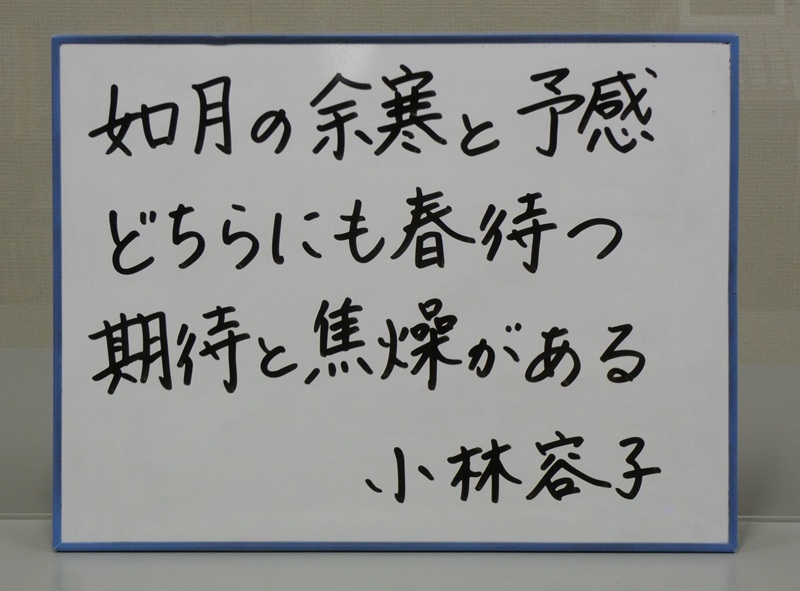 如月の余寒と予感
どちらにも春待つ
期待と焦燥がある
小林容子